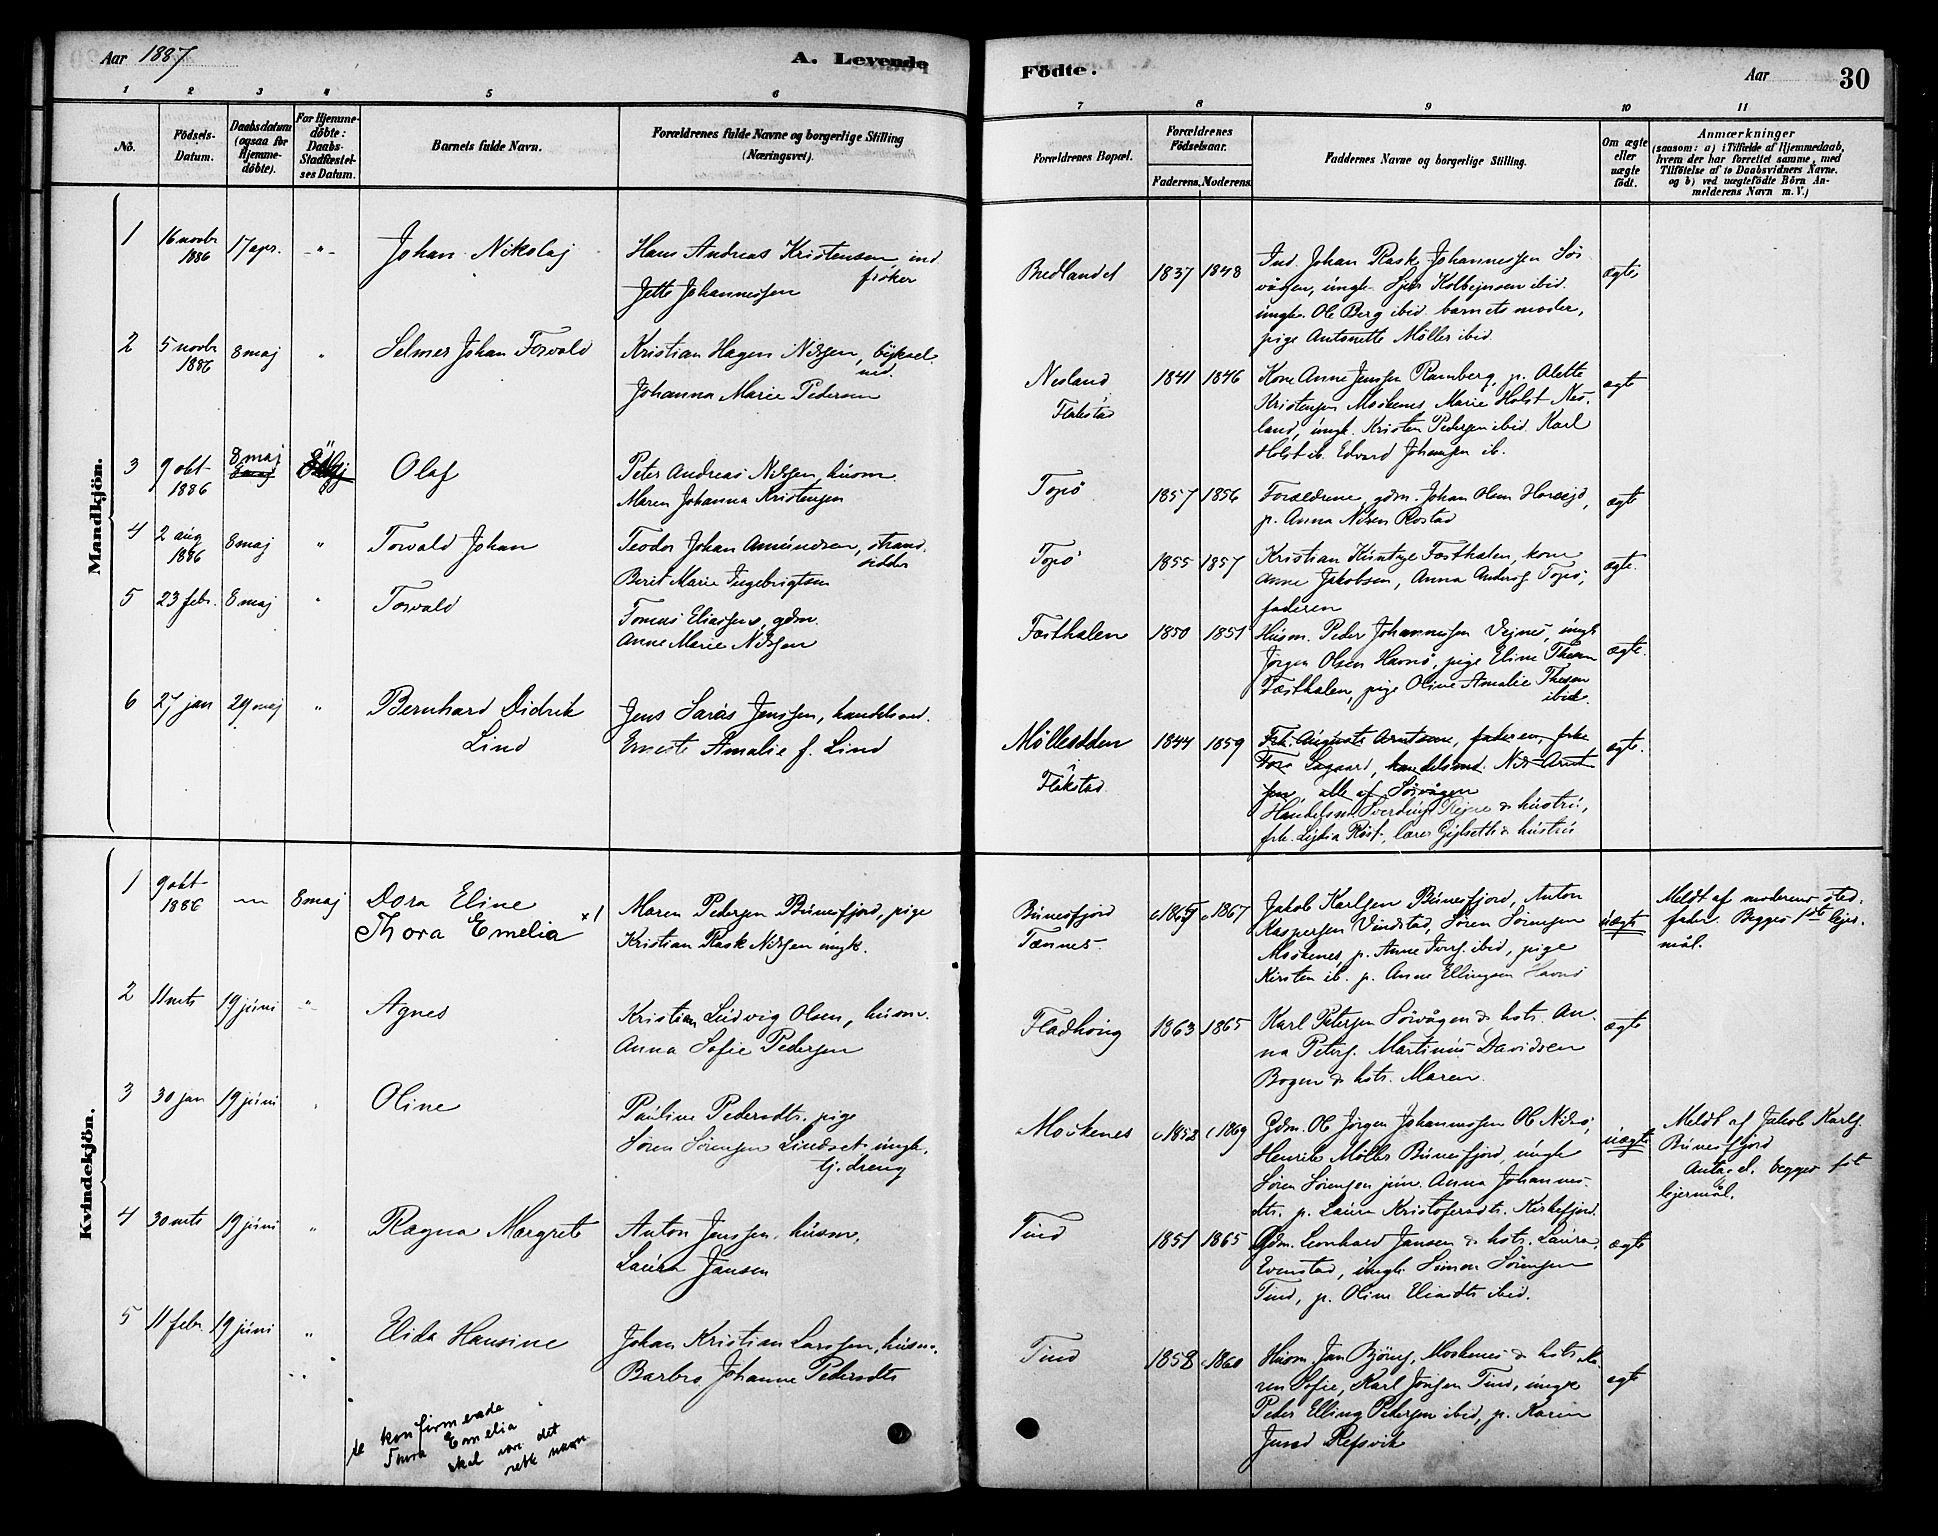 Aar 1887
A. Levende
Födte.
Aar
30
1 2 3 4 5 6 7 8 9 10 11
No.
Födsels-
Datum.
Daabsdatum
(ogsaa for
Hjemme-
döbte).
For Hjemme-
döbte:
Daabs-
Stadfæstel-
ses Datum.
Barnets fulde Navn.
Forældrenes fulde Navne og borgerlige Stilling
(Næringsvei).
Forældrenes Bopæl.
Forældrenes
Födselsaar.
Faderens. Moderens.
Faddernes Navne og borgerlige Stilling.
Om ægte
eller
uægte
födt.
Anmærkninger
(saasom: a) i Tilfælde af Hjemmedaab,
hvem der har forrettet samme, med
Tilföielse af to Daabsvidners Navne.
og b) ved uægtefödte Börn An-
melderens Navn m. V.)
Mandkjön.
1 16 novbr 1886 17 apr. Johan Nikolaj
Hans Andreas Kristensen ind
fisker
Jette Johannessen
Bredlandet 1837 1848
Ind. Johan Rask Johannessen Sör-
vågen, ungk. Kolbejnsen ibid.
ungk. Ole Berg ibid. barnets moder,
pige Antonette Møller ibid.
ægte
2 5 novbr 1886 8 maj " Selmer Johan Torvald
Kristian Hagen Nilsen, byksel-
md.
Johanna Marie Pedersen
Nesland
Flakstad
1841 1846
Kone Anne Jenssen Ramberg, p. Alette
Kristensen Moskenes Marie Holst Nes-
land, ungk. Kristen Pedersen ibid Karl
Holst ib. Edvard Johansen ib.
ægte
3 9 okt 1886 8 maj Olaf
Peter Andreas Nilssen, husm.
Maren Johanna Kristensen
Topø 1857 1856
Forældrene, gdm. Johan Olsen
p. Anna Nilsen Rostad
ægte
4 2 aug 1886 8 maj " Torvald Johan
Teodor Johan Amundsen, strand-
sidder
Berit Marie Ingebrigtsen
Topø 1855 1857
Kristian Fæsthalen, kone
Anne Jakobsen, Anna Anders. Topø,
faderen
ægte.
5 23 febr. 8 maj " Torvald
Tomas Eliassen, gdm.
Anne Marie Nilssen
Fæsthalen 1850 1851
Husm. Peder Johannessen Vejnes, ungk
Jørgen Olsen Havnø, pige Eline Thesen
Fæsthalen, pige Oline Amalie Thesen
ibid.
ægte.
6 27 jan 29 maj " Bernhard Didrik
Lind
Jens Jenssen, handelsmd.
Erneste Amalie f. Lind
Mølleodden
Flakstad
1844 1859
Frk. Augusta Arntsen, faderen, frk
Tora Lagaard, handelsmd. Nils Arnt
sen, alle af Sörvågen
Handelsm. Sverdrup Rejne & hustru,
frk. Lydia Röst, lærer Gylseth & hustru
ægte.
Kvindekjön.
1 9 okt 1886 8 maj Dora Eline
Thora Emelia x)
Maren Pedersen Bunesfjord, pige
Kristian Rask Nilssen ungk.
Bunesfjord
Tennes
c1867
Jakob Karlsen Bunesfjord, Anton
Kaspersen Vindstad, Søren Sørensen
Moskenes, p. Anne Ivers. ibid, pige
Kirsten ib. p. Anne Ellingsen Havnø
uægte
Meldt af moderens sted-
fader. Begges 1ste lejer-
mål.
2 11 mts 19 juni " Agnes
Kristian Ludvig Olsen, husm.
Anna Sofie Pedersen
Fladhøug 1863 1865
Karl Petersen Sörvågen & hstr. An-
na Peters. Martinus Davidsen
Bogen & hstr. Maren.
ægte
3 30 jan 19 juni Oline
Pauline Pedersdtr. pige
Søren Sørensen Lindset, ungk.
tj. dreng
Moskenes c1852 c1869
Gdm. Ol. Jørgen Johannessen Ol. Nilsø,
Henrik Møller Bunesfjord, ungk
Søren Sørensen jun. Anna Johannes-
dtr. p. Laura Kristofersdtr. Kirkefjord.
uægte
Meldt af Jakob Karls.
Bunesfjord
Antaget begges 1ste
lejermål.
4 30 mts 19 juni " Ragna Margrete
Anton Jenssen, husm.
Laura Jansen
Tind 1851 1865
Gdm. Leonhard Jansen & hstr. Laura,
Evenstad, ungk. Simon Sørensen
Tind, p. Oline Eliasdtr ibid.
ægte
5 11 febr. 19 juni " Elida Hansine
Johan Kristian Larssen, husm.
Barbro Johanne Pedersdtr
Tind 1858 c1860
Husm. Jan Bjönes, Moskenes & hstr Ma-
ren Sofie, Karl Jonsen Tind, ungk
Peter Elling Petersen ibid, p. Karen
Refsvik
ægte
konfirmerede
Thora Emelia
skal være det
rette navn